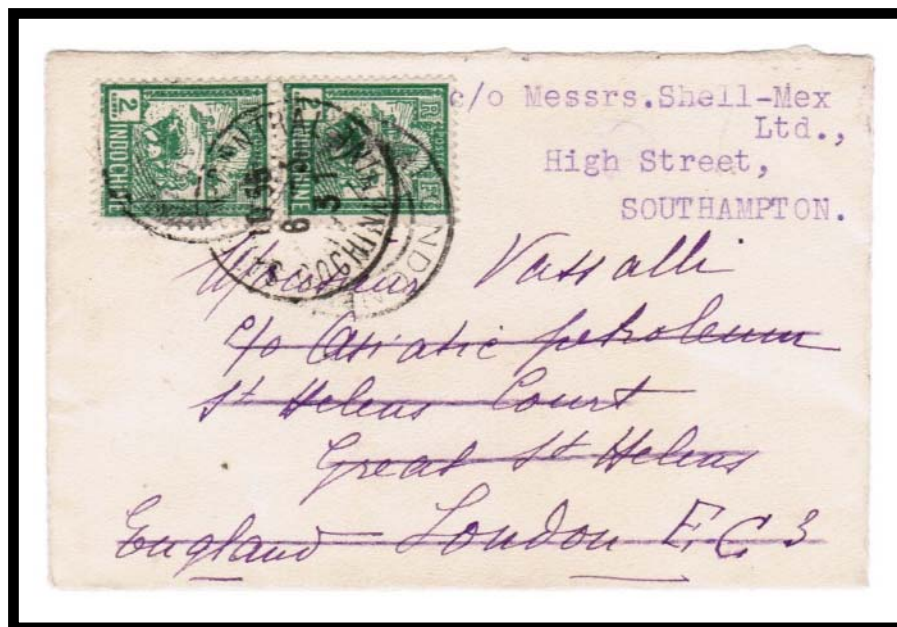 2
INDOCHINE
2
INDOCHINE
c/o Messrs.Shell-Mex
Ltd.,
High Street,
SOUTHAMPTON.
Monsieur Vassalli
c/o Asiatic petroleum
St Helens Court
Great St Helens
England London E.C 3